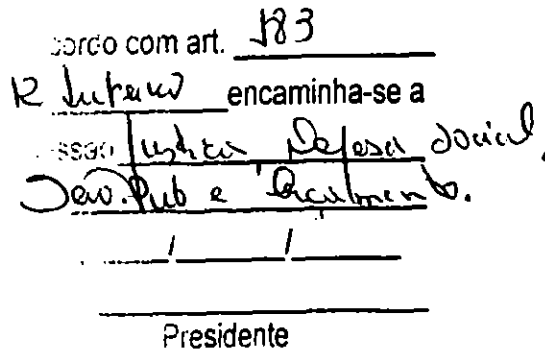 cordo com art. 183
R Interno encaminha-se a
ssão Justica Defesa Social,
Serv. Pub e Orçamento.
/ /
Presidente